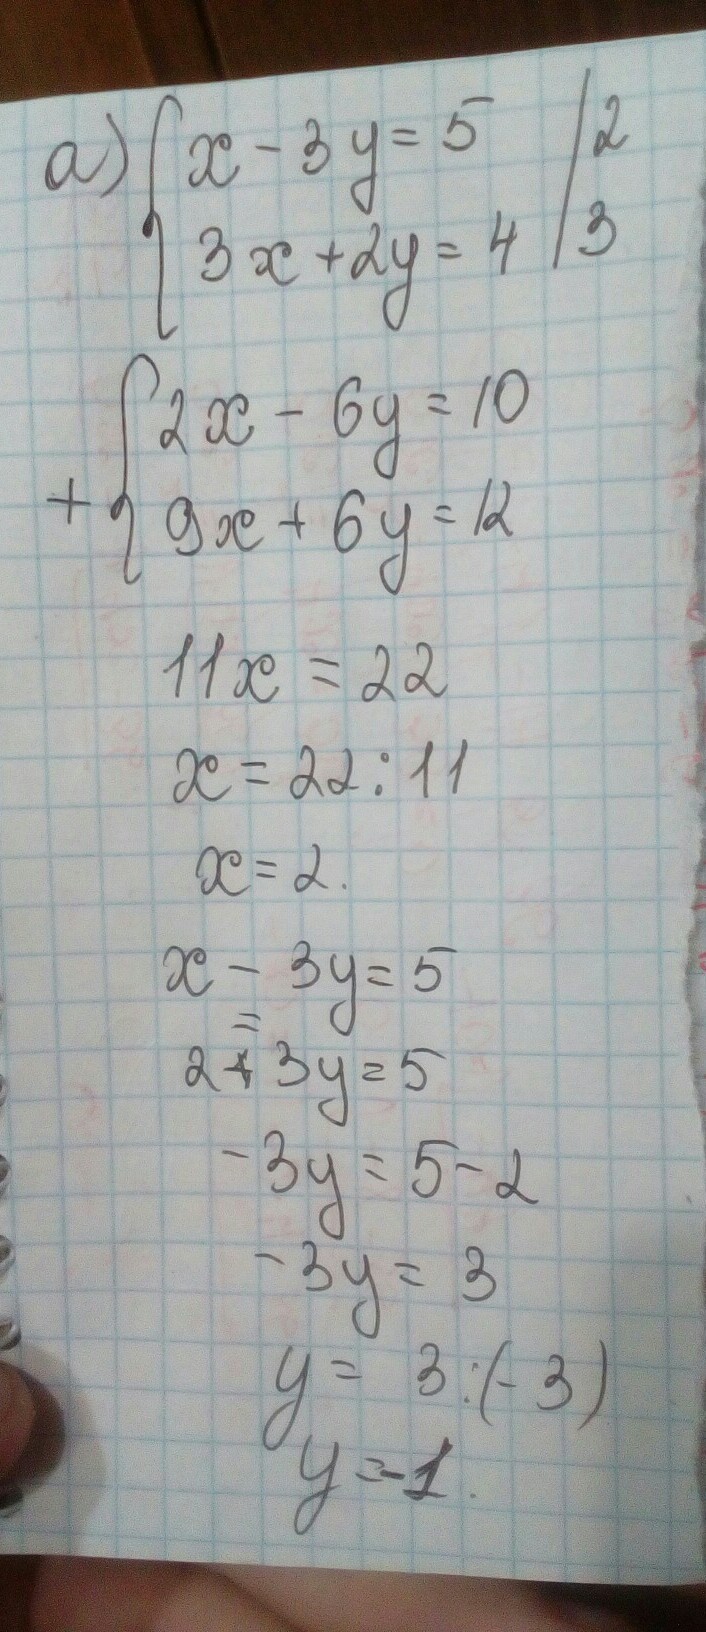 а) { x - 3y = 5 | 2
3x + 2y = 4 | 3
+ { 2x - 6y = 10
9x + 6y = 12
11x = 22
x = 22 : 11
x = 2.
x - 3y = 5
=
2 - 3y = 5
-3y = 5 - 2
-3y = 3
y = 3 : (-3)
y = -1.